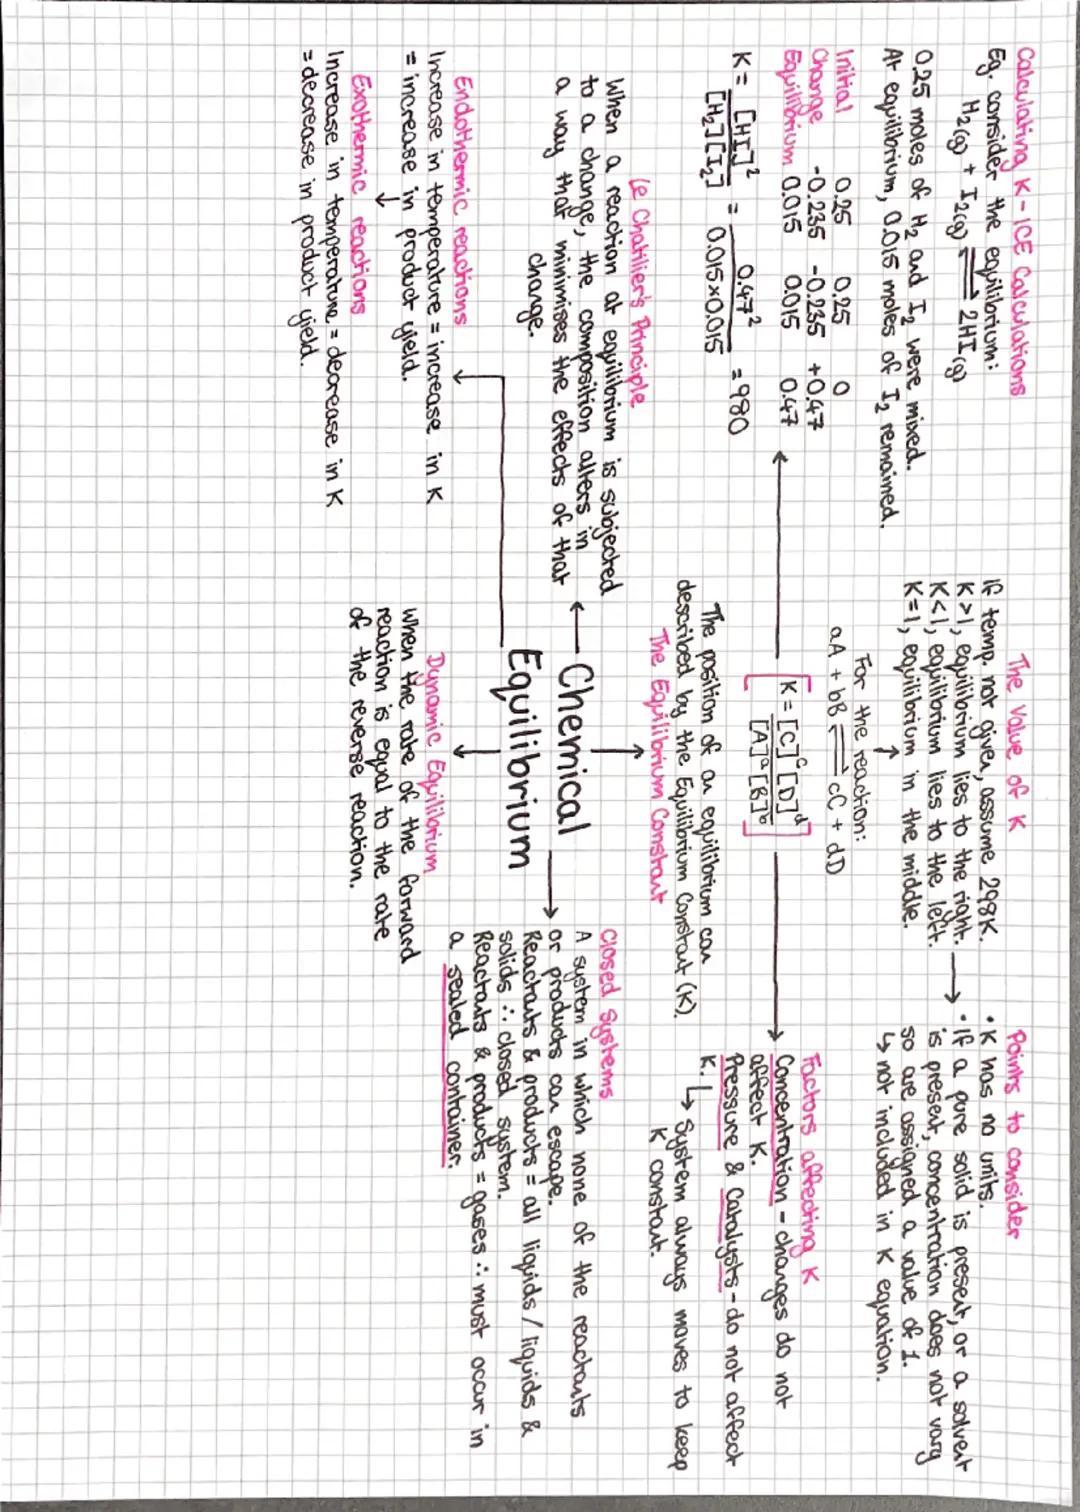 Calculating K - ICE Calculations
Eg. consider the equilibrium:
H₂(g) + I₂(g) ⇌ 2HI(g)
0.25 moles of H₂ and I₂ were mixed.
At equilibrium, 0.015 moles of I₂ remained.
Initial 0.25 0.25 0
Change -0.235 -0.235 +0.47
Equilibrium 0.015 0.015 0.47
K = [HI]² / [H₂][I₂] = 0.47² / 0.015×0.015 = 980
The Value of K
If temp. not given, assume 298K.
K>1, equilibrium lies to the right.
K<1, equilibrium lies to the left.
K=1, equilibrium in the middle.
For the reaction:
aA + bB ⇌ cC + dD
[K = [C]ᶜ[D]ᵈ / [A]ᵃ[B]ᵇ]
The position of an equilibrium can
described by the Equilibrium Constant (K).
The Equilibrium Constant
Points to consider
• K has no units.
→ • If a pure solid is present, or a solvent
is present, concentration does not vary
so are assigned a value of 1.
↳ not included in K equation.
Factors affecting K
Concentration - changes do not
affect K.
Pressure & Catalysts - do not affect
K. ↳ System always moves to keep
K constant.
Le Chatilier's Principle
When a reaction at equilibrium is subjected
to a change, the composition alters in
a way that minimises the effects of that
change.
Chemical
Equilibrium
Endothermic reactions
Increase in temperature = increase in K
= increase in product yield.
Exothermic reactions
Increase in temperature = decrease in K
= decrease in product yield.
Dynamic Equilibrium
When the rate of the forward
reaction is equal to the rate
of the reverse reaction.
Closed Systems
A system in which none of the reactants
or products can escape.
Reactants & products = all liquids / liquids &
solids ∴ closed system.
Reactants & products = gases ∴ must occur in
a sealed container.